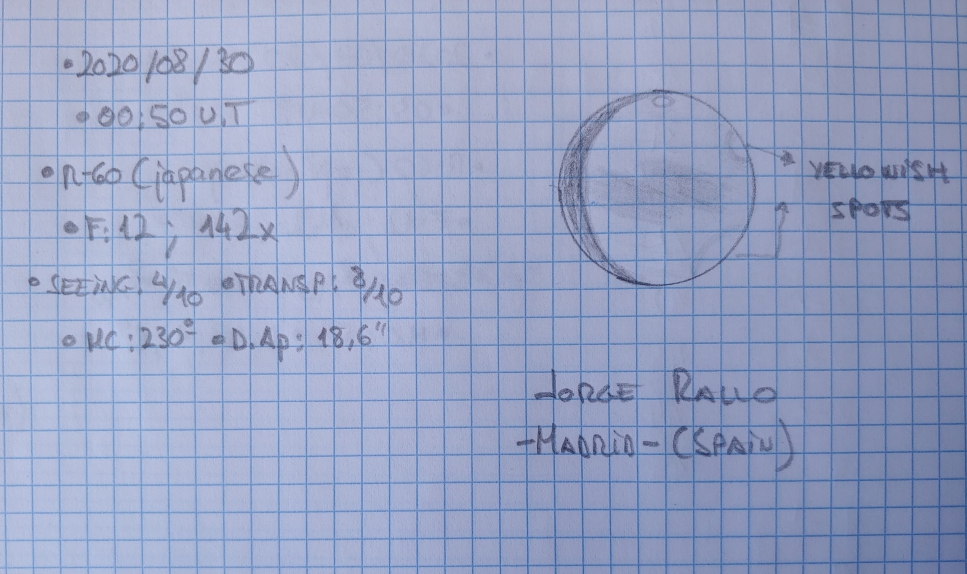 •2020/08/30
•00:50 U.T
•R-60 (japanese)
•F:12; 142x
•SEEING: 4/10 •TRANSP: 8/10
•MC:230° •D.Ap: 18,6"
YELLOWISH
SPOTS
JORGE RALLO
-MADRID- (SPAIN)